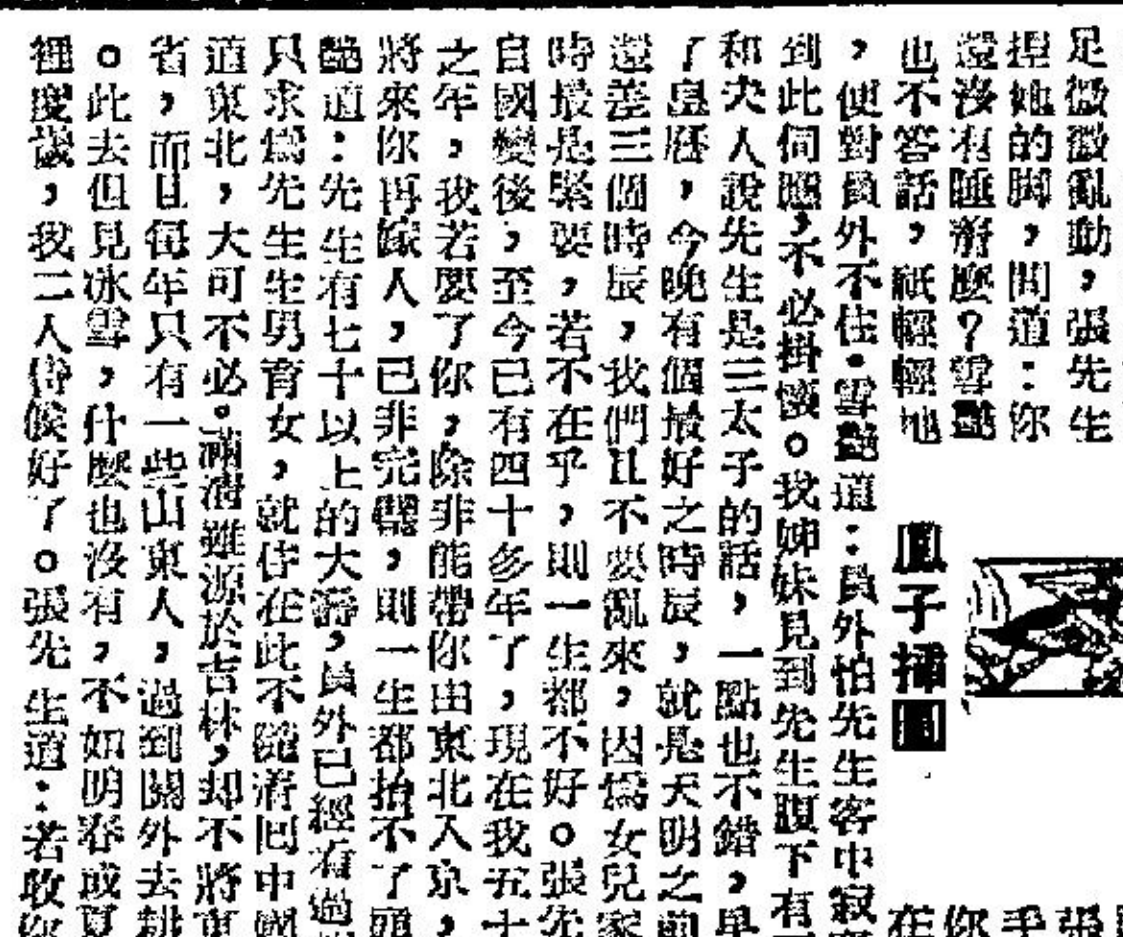 足微微亂動，張先生
捏她的脚，問道：你
還沒有睡着麼？雪艷
也不答話，祇輕輕地
，便對員外不住。雪艷道：員外怕先生客中寂
到此伺應，不必掛懷。我姊妹見到先生腹下有
和夫人說先生是三太子的話，一點也不錯，早
了皇曆，今晚有個最好之時辰，就是天明之前
還差三個時辰，我們且不要亂來，因爲女兒家
時最是緊要，若不在乎，則一生都不好。張先
自國變後，至今已有四十多年了，現在我五十
之年，我若要了你，除非能帶你由東北入京，
將來你再嫁人，已非完璧，則一生都抬不了頭
艷道：先生有七十以上的大壽，員外已經有過
只求爲先生生男育女，就待在此不隨着囘中國
道東北，大可不必。滿清雖源於吉林，却不將東
省，而且每年只有一些山東人，過到關外去耕
。此去但見冰雪，什麼也沒有，不如明春或夏
裡度歲，我二人侍候好了。張先生道：若收你
鳳子插圖
張
手
你
在